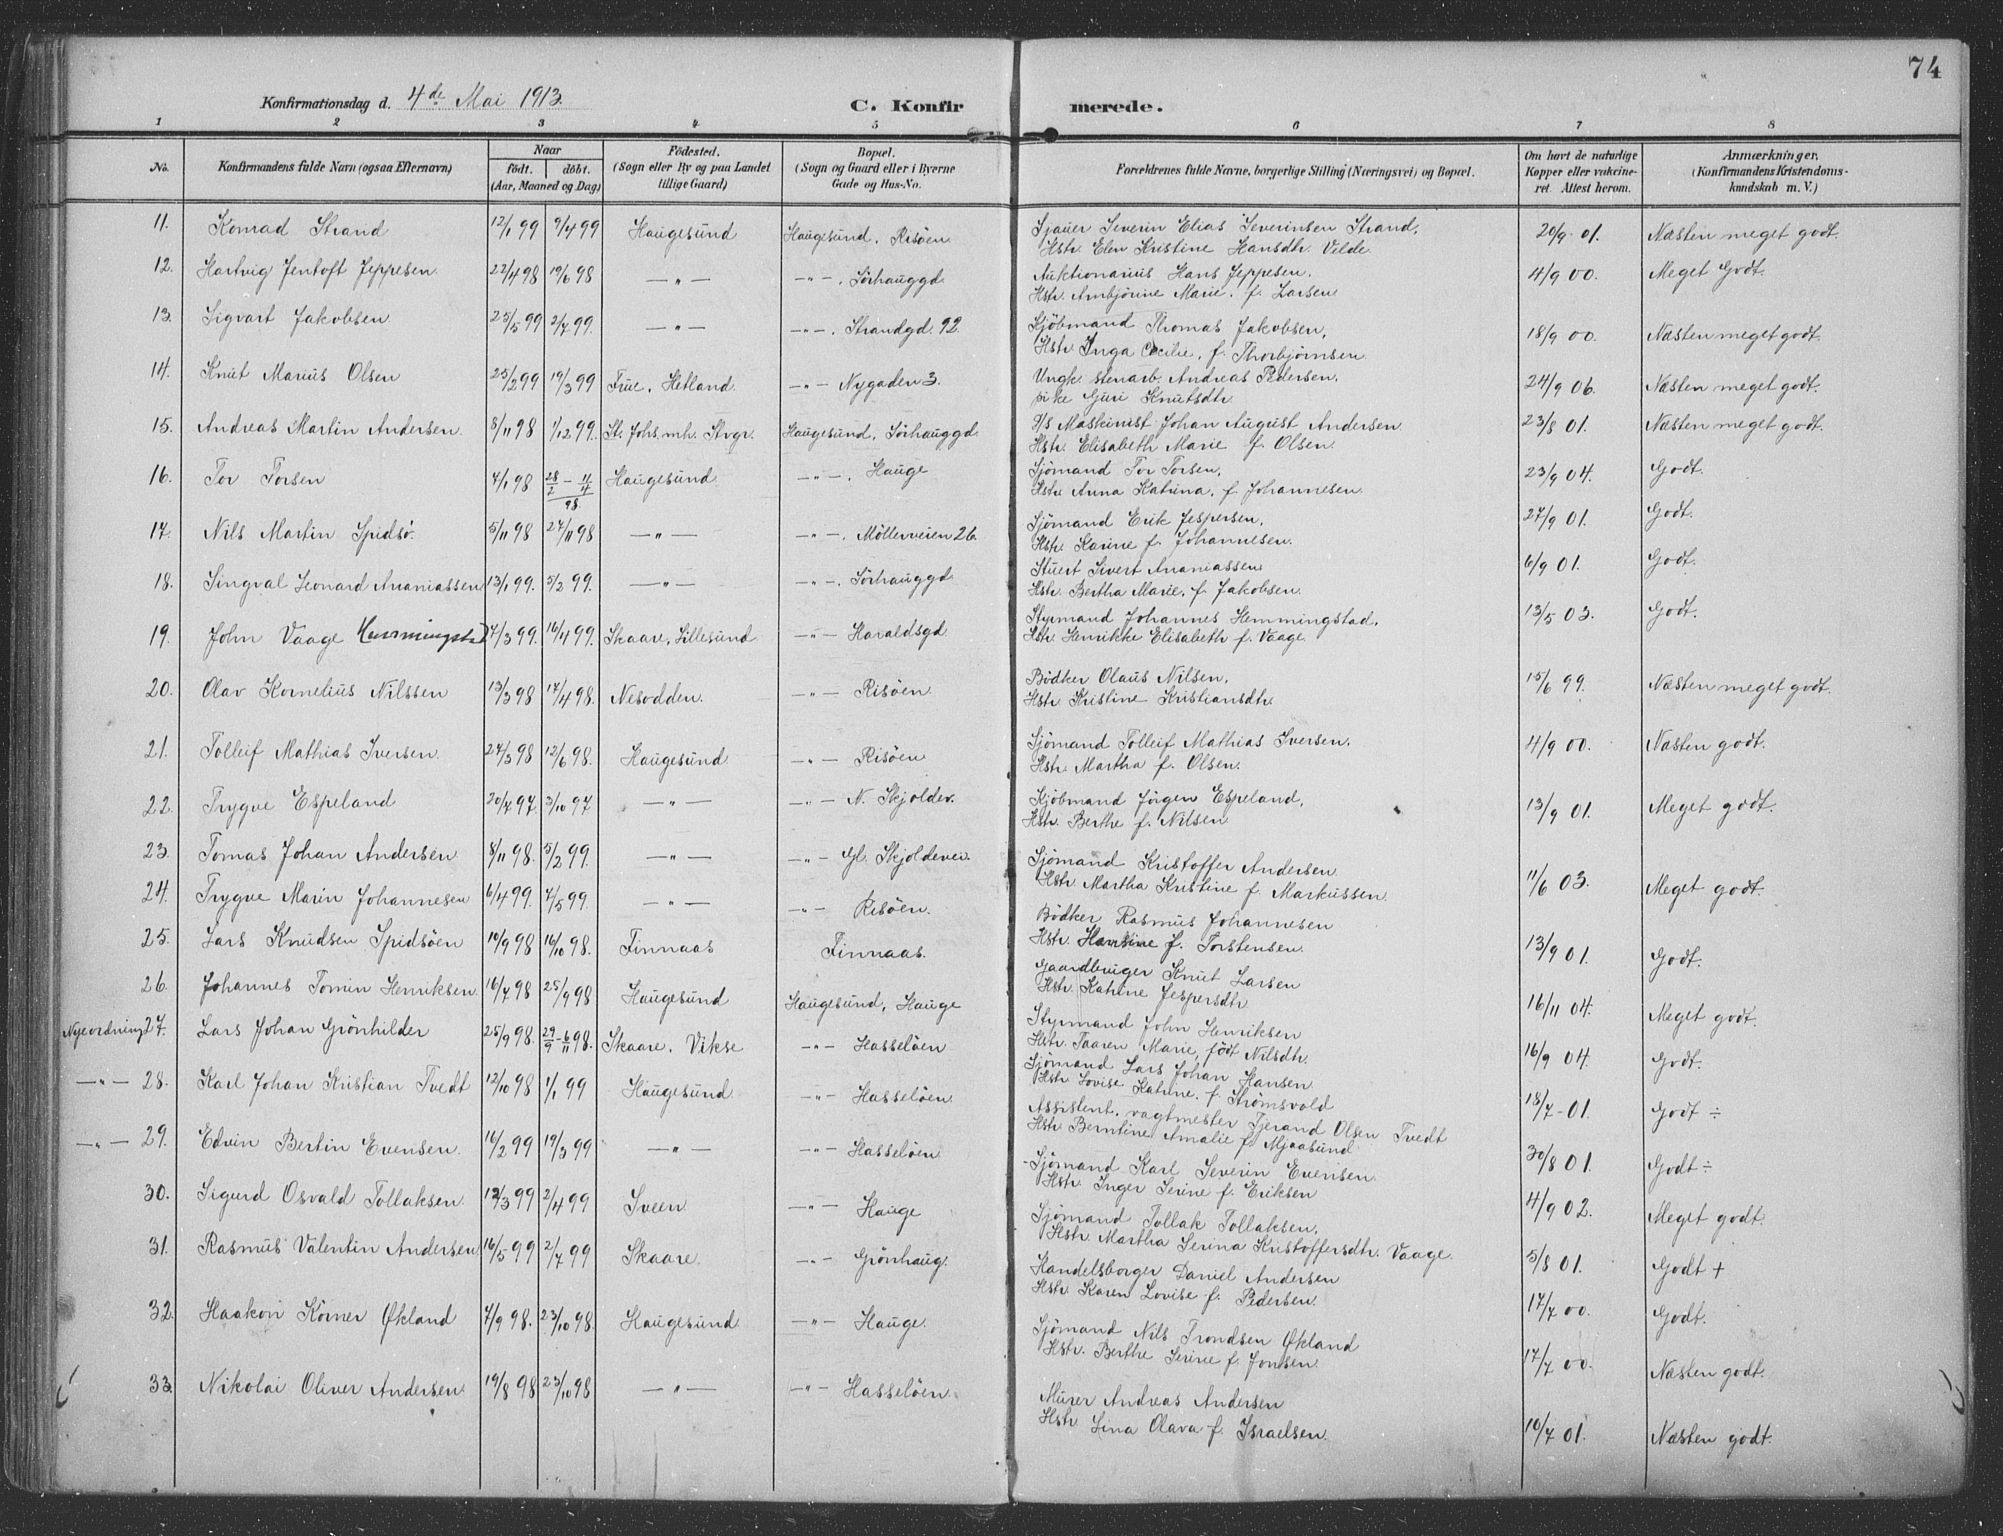 74
Konfirmationsdag d. 4de Mai 1913. C. Konfirmerede.
1 2 3 4 5 6 7 8
No. Konfirmandens fulde Navn (ogsaa Efternavn) Naar født. døbt. (Aar, Maaned og Dag) Fødested. (Sogn eller By og paa Landet tillige Gaard) Bopæl. (Sogn og Gaard eller i Byerne Gade og Hus-No. Forældrenes fulde Navne, borgerlige Stilling (Næringsvei) og Bopæl. Om havt de naturlige Kopper eller vakcineret. Attest herom. Anmærkninger. (Konfirmandens Kristendomskundskab m. V.)
11. Konrad Strand 12/1 99 9/4 99 Haugesund Haugesund, Risøen Sjauer Severin Elias Severinsen Strand, 20/9 01. Næsten meget godt.
Hstr. Elen Kristine Hansdtr. Velde.
12. Hartvig Jentoft Jeppesen 22/4 98 19/6 98 —"— —"—, Sørhauggd. Auktionarius Hans Jeppesen. 4/9 00. Meget Godt.
Hstr. Ambjørine Marie, f. Larsen
13. Sigvart Jakobsen 25/5 99 2/7 99. —"— —"—, Strandgd. 92 Kjøbmand Thomas Jakobsen, 18/9 00. Næsten meget godt.
Hstr. Inga Cecilie, f. Thorbjørnsen
14. Knut Marius Olsen 25/2 99 19/3 99 Tue, Hetland. —"— Nygaden 3. Ungk. stenarb. Andreas Pedersen, 24/9 06. Næsten meget godt.
pike Guri Knutsdtr.
15. Andreas Martin Andersen 8/11 98 1/12 99. St. Johs. mh. Stvgr. Haugesund, Sørhauggd. D/S Maskinist Johan August Andersen 23/8 01. Næsten meget godt.
Hstr. Elisabeth Marie f. Olsen.
16. Tor Torsen 4/1 98 28/2 – 11/4 98 Haugesund —"—, Hauge Sjømand Tor Torsen, 23/9 04. Godt.
Hstr. Anna Katrina, f. Johannesen.
17. Nils Martin Spidsø. 5/11 98 27/11 98 —"— —"—, Møllerveien 26. Sjømand Erik Jespersen, 27/9 01. Godt.
Hstr. Karine f. Johannesen.
18. Singval Leonard Ananiassen 13/1 99. 5/2 99. —"— —"—, Sørhauggd. Stuert Sivert Ananiassen 6/9 01. Godt.
Hstr. Bertha Marie, f. Jakobsen.
19. John Vaage Hemmingstad 7/3 99. 16/4 99. Skaare, Lillesund —"— Haraldsgd. Styrmand Johannes Hemmingstad, 13/5 03. Godt.
Hstr. Henrikke Elisabeth f. Vaage.
20. Olav Kornelius Nilssen 13/3 98 17/4 98. Nesodden. —"— Risøen. Bødker Olaus Nilsen, 15/6 99. Næsten meget godt.
Hstr. Kristine Kristiansdtr.
21. Tolleif Mathias Iversen. 27/3 98 12/6 98. Haugesund —"— Risøen Sjømand Tolleif Mathias Iversen. 4/9 00. Næsten godt.
Hstr. Martha f. Olsen.
22. Trygve Espeland 20/7 97. 3/10 97 —"— —"— N. Skjoldev. Kjøbmand Jørgen Espeland, 13/9 01. Meget godt.
Hstr. Berthe f. Nilsen
23. Tomas Johan Andersen 8/11 98. 5/2 99. —"— —"— Gl. Skjoldevei. Sjømand Kristoffer Andersen 11/6 03. Meget godt.
Hstr. Martha Kristine f. Markussen.
24. Trygve Marin Johannesen 6/4 99. 7/5 99. —"— —"— Risøen. Bødker Rasmus Johannesen
Hstr. Hansine f. Torstensen. 13/9 01. Godt.
25. Lars Knudsen Spidsøen 10/9 98 16/10 98. Finnaas Finnaas. Gaardbruger Knut Larsen
Hstr. Katrine Jespersdtr. 16/11 04. Meget godt.
26. Johannes Tomin Henriksen 16/7 98 25/9 98 Haugesund Haugesund, Hauge Styrmand John Henriksen
Hstr. Taaren Marie, født Nilsdtr. 16/9 04. Godt.
Nyeordning 27. Lars Johan Grønhilder 25/9 98. 29/9 – 6/11 98. Skaare, Vikse —"— Hasseløen Sjømand Lars Johan Hansen
Hstr. Lovise Katrine, f. Strømsvold 18/7 - 01. Godt ÷
—"— 28. Karl Johan Kristian Tvedt 12/10 98 1/1 99 Haugesund —"— Hasseløen. Assistent, vagtmester Tjerand Olsen Tvedt
Hstr. Berntine Amalie f. Mjaasund 30/8 01. Godt ÷
—"— 29. Edvin Bertin Evensen. 16/2 99 19/3 99 —"— —"— Hasseløen Sjømand Karl Severin Evensen.
Hstr. Inger Serine f. Eriksen 4/9 02. Meget godt.
30. Sigurd Osvald Tollaksen. 12/3 99 2/4 99 Sveen —"— Hauge Sjømand Tollak Tollaksen,
Hstr. Martha Serina Kristoffersdtr. Vaage. 5/8 01. Godt +
31. Rasmus Valentin Andersen. 16/5 99 2/7 99 Skaare. —"— Grønhaug. Handelsborger Daniel Andersen
Hstr. Karen Lovise f. Pedersen. 17/7 00. Godt.
32. Haakon Körner Økland 4/9 98. 23/10 98. Haugesund —"— Hauge. Sjømand Nils Trondsen Økland
Hstr. Berthe Serine f. Jonsen. 17/7 00. Næsten godt.
33. Nikolai Oliver Andersen. 19/8 98 23/10 98 —"— —"— Hasseløen. Murer Andreas Andersen
Hstr Lina Olava f. Israelsen. 10/7 01. Næsten godt.